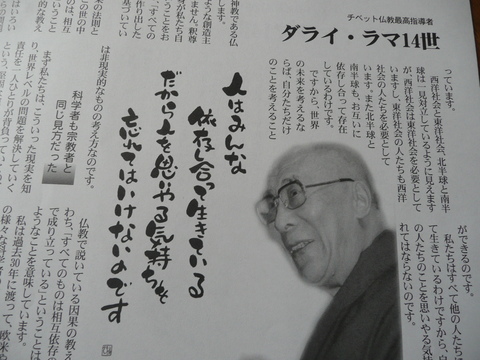 チベット仏教最高指導者
ダライ・ラマ14世
っています。
西洋社会と東洋社会、北半球と南半
球は一見対立しているように見えます
が、西洋社会は東洋社会を必要として
いますし、東洋社会の人たちも西洋
社会の人たちを必要として
います。また北半球と
南半球も、お互いに
依存し合って存在
しているわけです。
ですから、世界
の未来を考えるな
らば、自分たちだけ
のことを考えること
は非現実的なものの考え方なのです。
人はみんな
依存し合って生きている
だから人を思いやる気持ちを
忘れてはいけないのです
科学者も宗教者と
同じ見方だった
まず私たちは、こういった現実を知
り、世界レベルの問題を解決していく
責任を一人ひとりが背負ってい
ができるのです。
私たちはすべて他の人た
て生きているわけですから、自
の人たちのことを思いやる気
れてはならないのです。
仏教で説いている因果の教え
わち、「すべてのものは相互依存の
で成り立っている」ということは
ようなことを意味しています。
私は過去30年に渡って、欧米や
の様々な